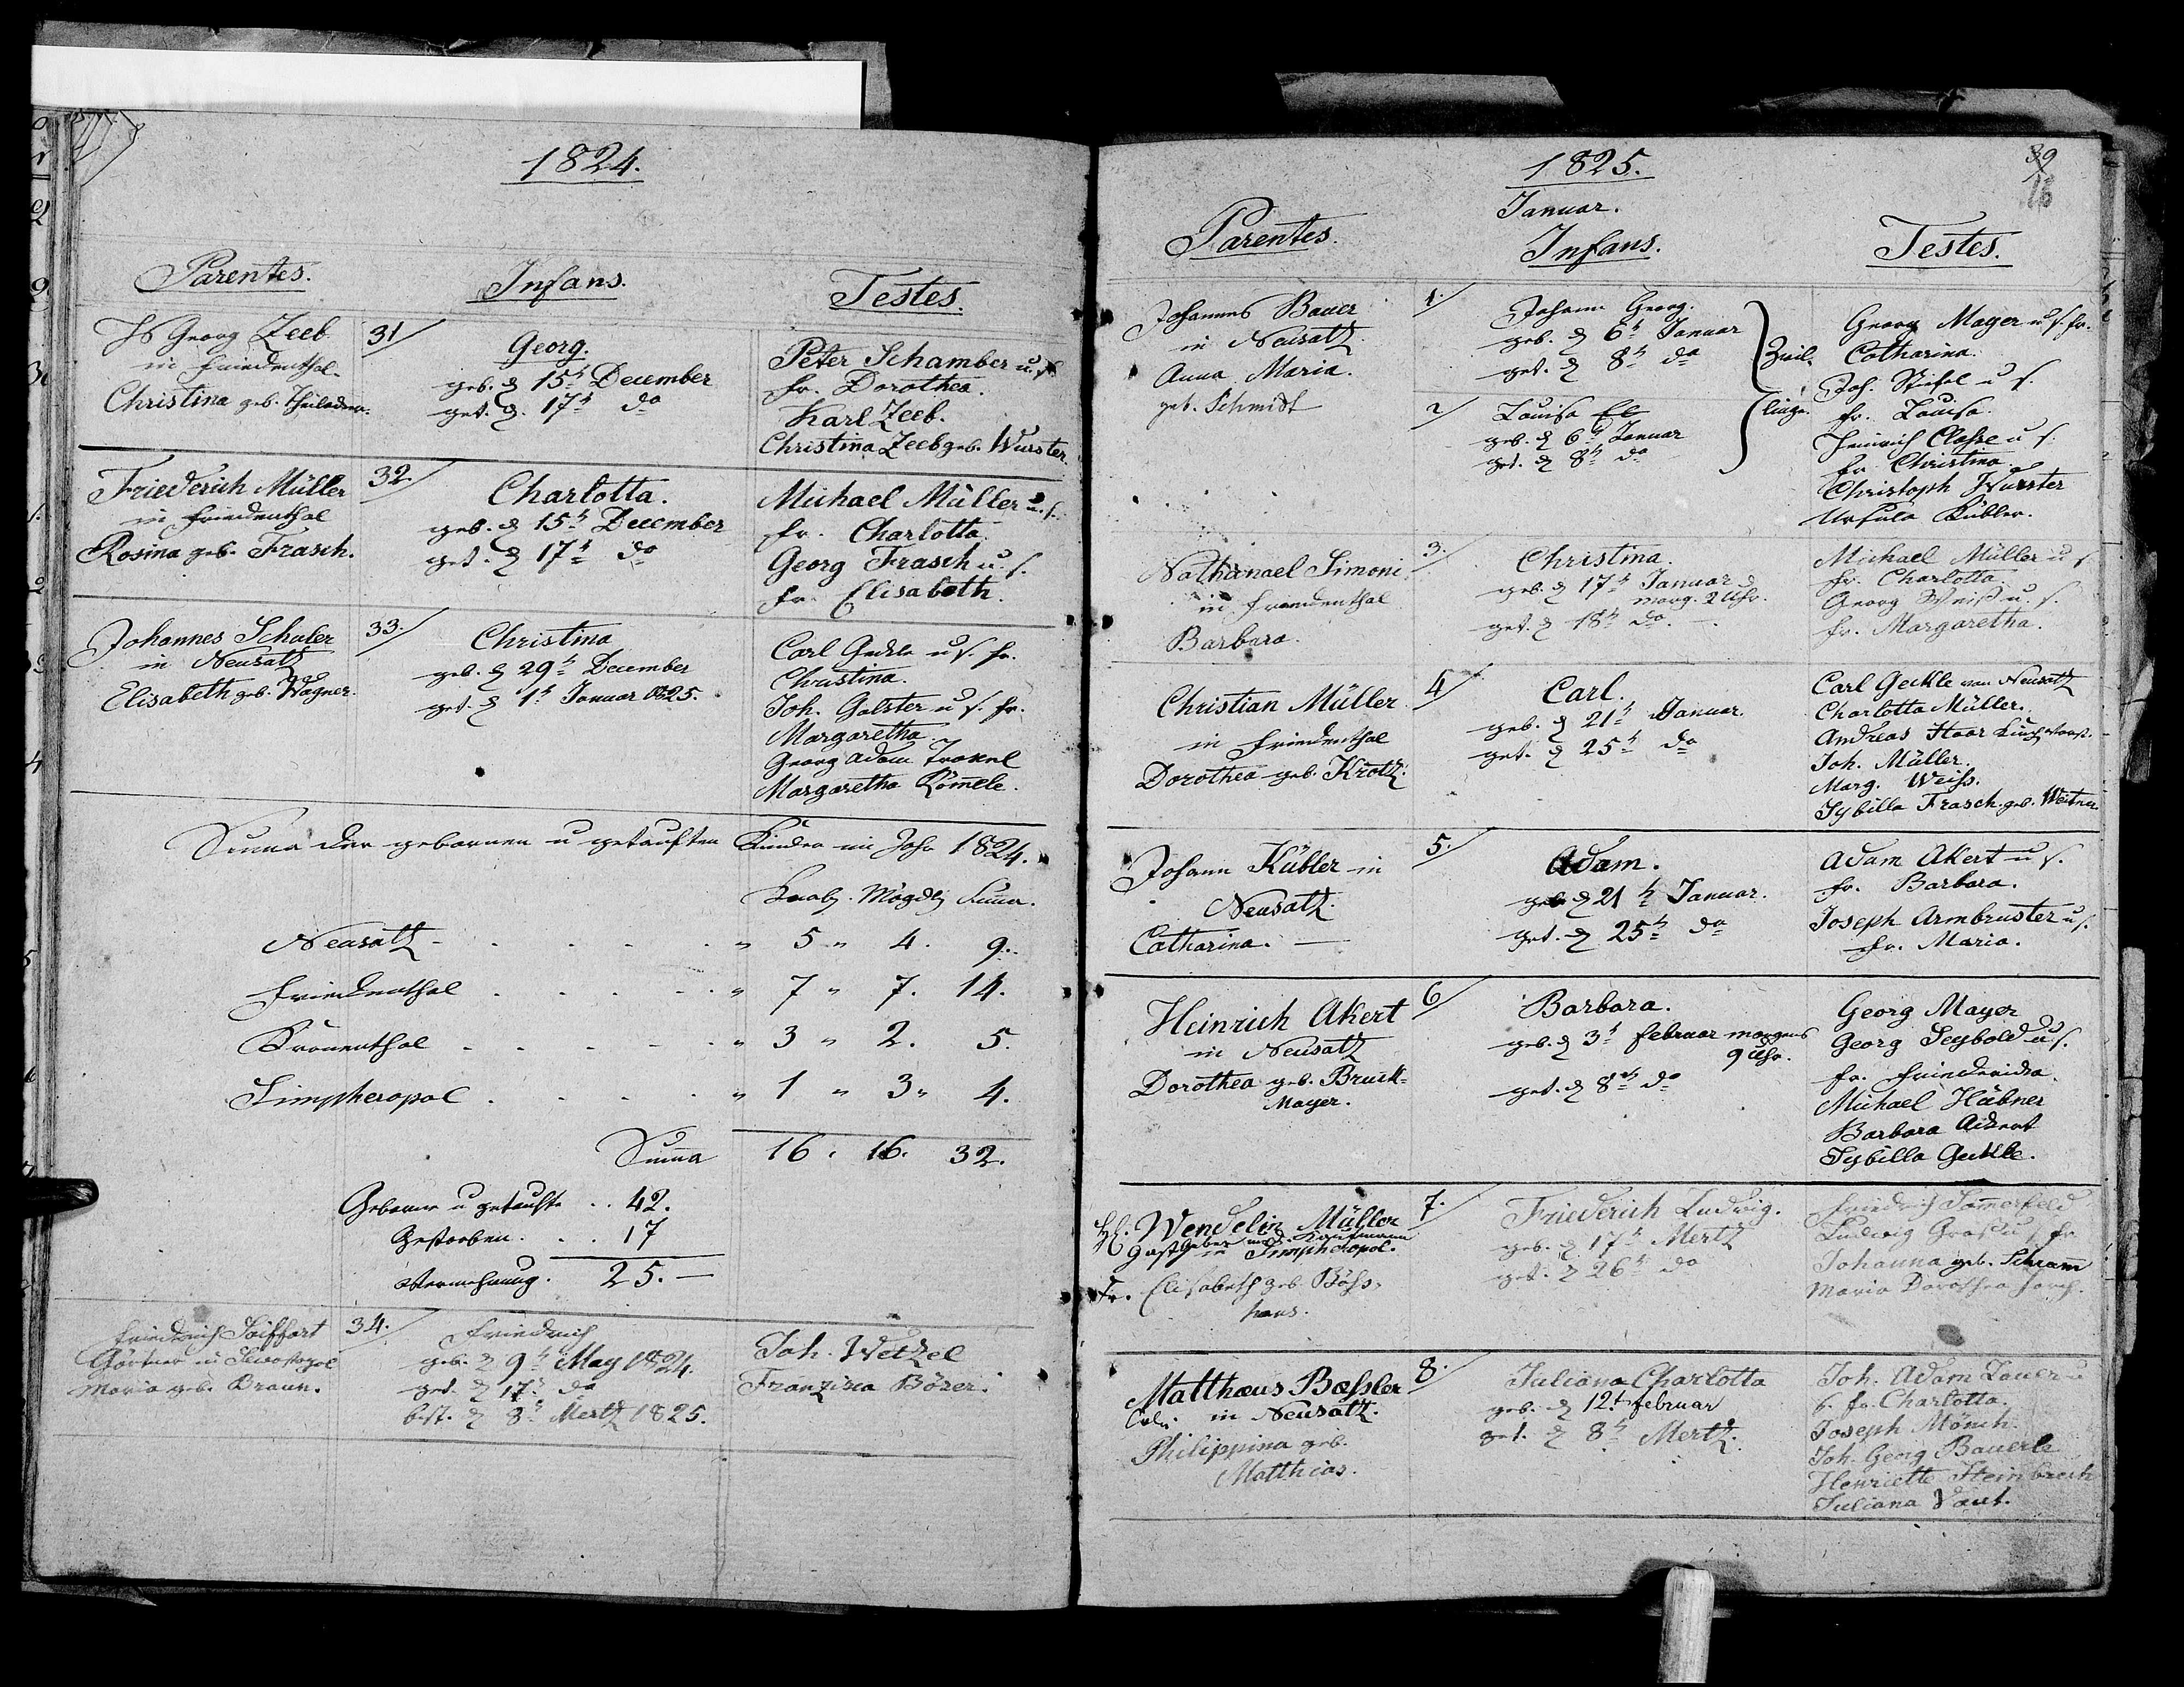 1824.
Parentes.
Infans.
Testes.
Js Georg Zeeb
in Friedenthal.
Christina geb.
31/
Georg.
geb. d 15t December
get. d. 17t do
Peter Schamber u. s.
fr. Dorothea.
Karl Zeeb.
Christina Zeeb geb. Wurster.
Friederich Müller
in Friedenthal
Rosina geb. Frasch.
32/
Charlotta.
geb. d 15t December
get. d 17t do
Michael Müller u. s.
fr. Charlotta.
Georg Frasch u. s.
fr. Elisabeth.
Johannes Schuler
in Neusatz
Elisabeth geb. Wagner.
33./
Christina
geb. d 29t December
get. d 1t Januar 1825.
Carl Geckle u s. fr.
Christina.
Joh. Galster u s. fr.
Margaretha.
Georg Adam
Margaretha Römele.
Summa der gebornen u getauften Kinder im Jahr 1824.
Knab. Mägdl. Suma.
Neusatz - . . . . " 5 " 4. 9..
Friedenthal . . . . " 7 " 7. 14.
Kronenthal . . . . " 3 " 2. 5.
Simpheropol . . . . " 1 " 3 " 4.
Summa 16. 16. 32.
Geborne u getaufte . . 42.
Gestorben. . . 17
Vermehrung. 25. —
Friedrich Seiffart
Gärtner in Sewastopol
Maria geb. Braun.
34./
Friedrich
geb. d 9t May 1824.
get. d 17t do
best. d 8t Mertz 1825.
Joh. Wetzel
Franzisca Börer.
39
16
1825.
Januar.
Parentes.
Infans.
Testes.
Johannes Bauer
in Neusatz.
Anna Maria.
geb. Schmidt
1./
Johann Georg.
geb. d 6t Januar
get. d 8t do
2/
Louisa
geb. d 6t Januar
get. d 8t do
Zwil-
linge.
Georg Mayer u. s. fr.
Catharina.
Joh. Stifel u s.
fr. Louisa.
Heinrich Classe u s.
fr. Christina.
Christoph Wurster
Ursula Kübler.
Nathanael Simoni
in Friedenthal
Barbara.
3./
Christina.
geb. d 17t Januar
morg. 2 Uhr.
get. d 18t do. —
Michael Müller u s
fr. Charlotta.
Georg Weiß u. s.
fr. Margaretha.
Christian Müller
in Friedenthal
Dorothea geb. Krotz.
4/
Carl.
geb. d 21t Januar.
get. d 25t do
Carl Geckle von Neusatz
Charlotta Müller.
Andreas Haar
Joh. Müller.
Marg. Weiss.
Sybilla Frasch. geb. Weitner.
Johann Kübler in
Neusatz.
Catharina. —
5./
Adam.
geb. d 21t Januar.
get. d 25t do
Adam Akert u s.
fr. Barbara.
Joseph Armbruster u s.
fr. Maria.
Heinrich Akert
in Neusatz
Dorothea geb. Bruck-
Mayer.
6/
Barbara.
geb. d 3t Februar morgens
9 Uhr.
get. d 8t do
Georg Mayer
Georg Seybold u s.
fr. Friederika.
Michael Häbner
Barbara Ackert
Sybilla Geckle.
H. Wendelin Müller
Gastgeber und Kaufmann
in Simpheropol.
Fr. Elisabeth geb. Böss-
haus.
7./
Friederich Ludwig.
geb. d 17t Mertz
get. d 26t do
Friedrich Somerfeld
Ludwig Groß u s fr
Johanna geb. Schramm
Maria Dorothea
Matthæus Bæssler
Coln. in Neusatz.
Philippina geb.
Matthias.
8./
Juliana Charlotta
geb. d 12t Februar
get. d 8t Mertz.
Joh. Adam Lauer u
s. fr. Charlotta.
Joseph Mönch.
Joh. Georg Bauerle
Henriette Steinbrech
Juliana Vaut.